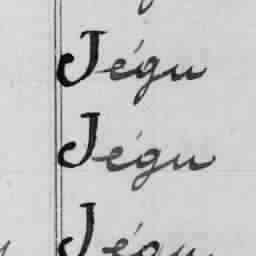 Jégu
Jégu
Jégu